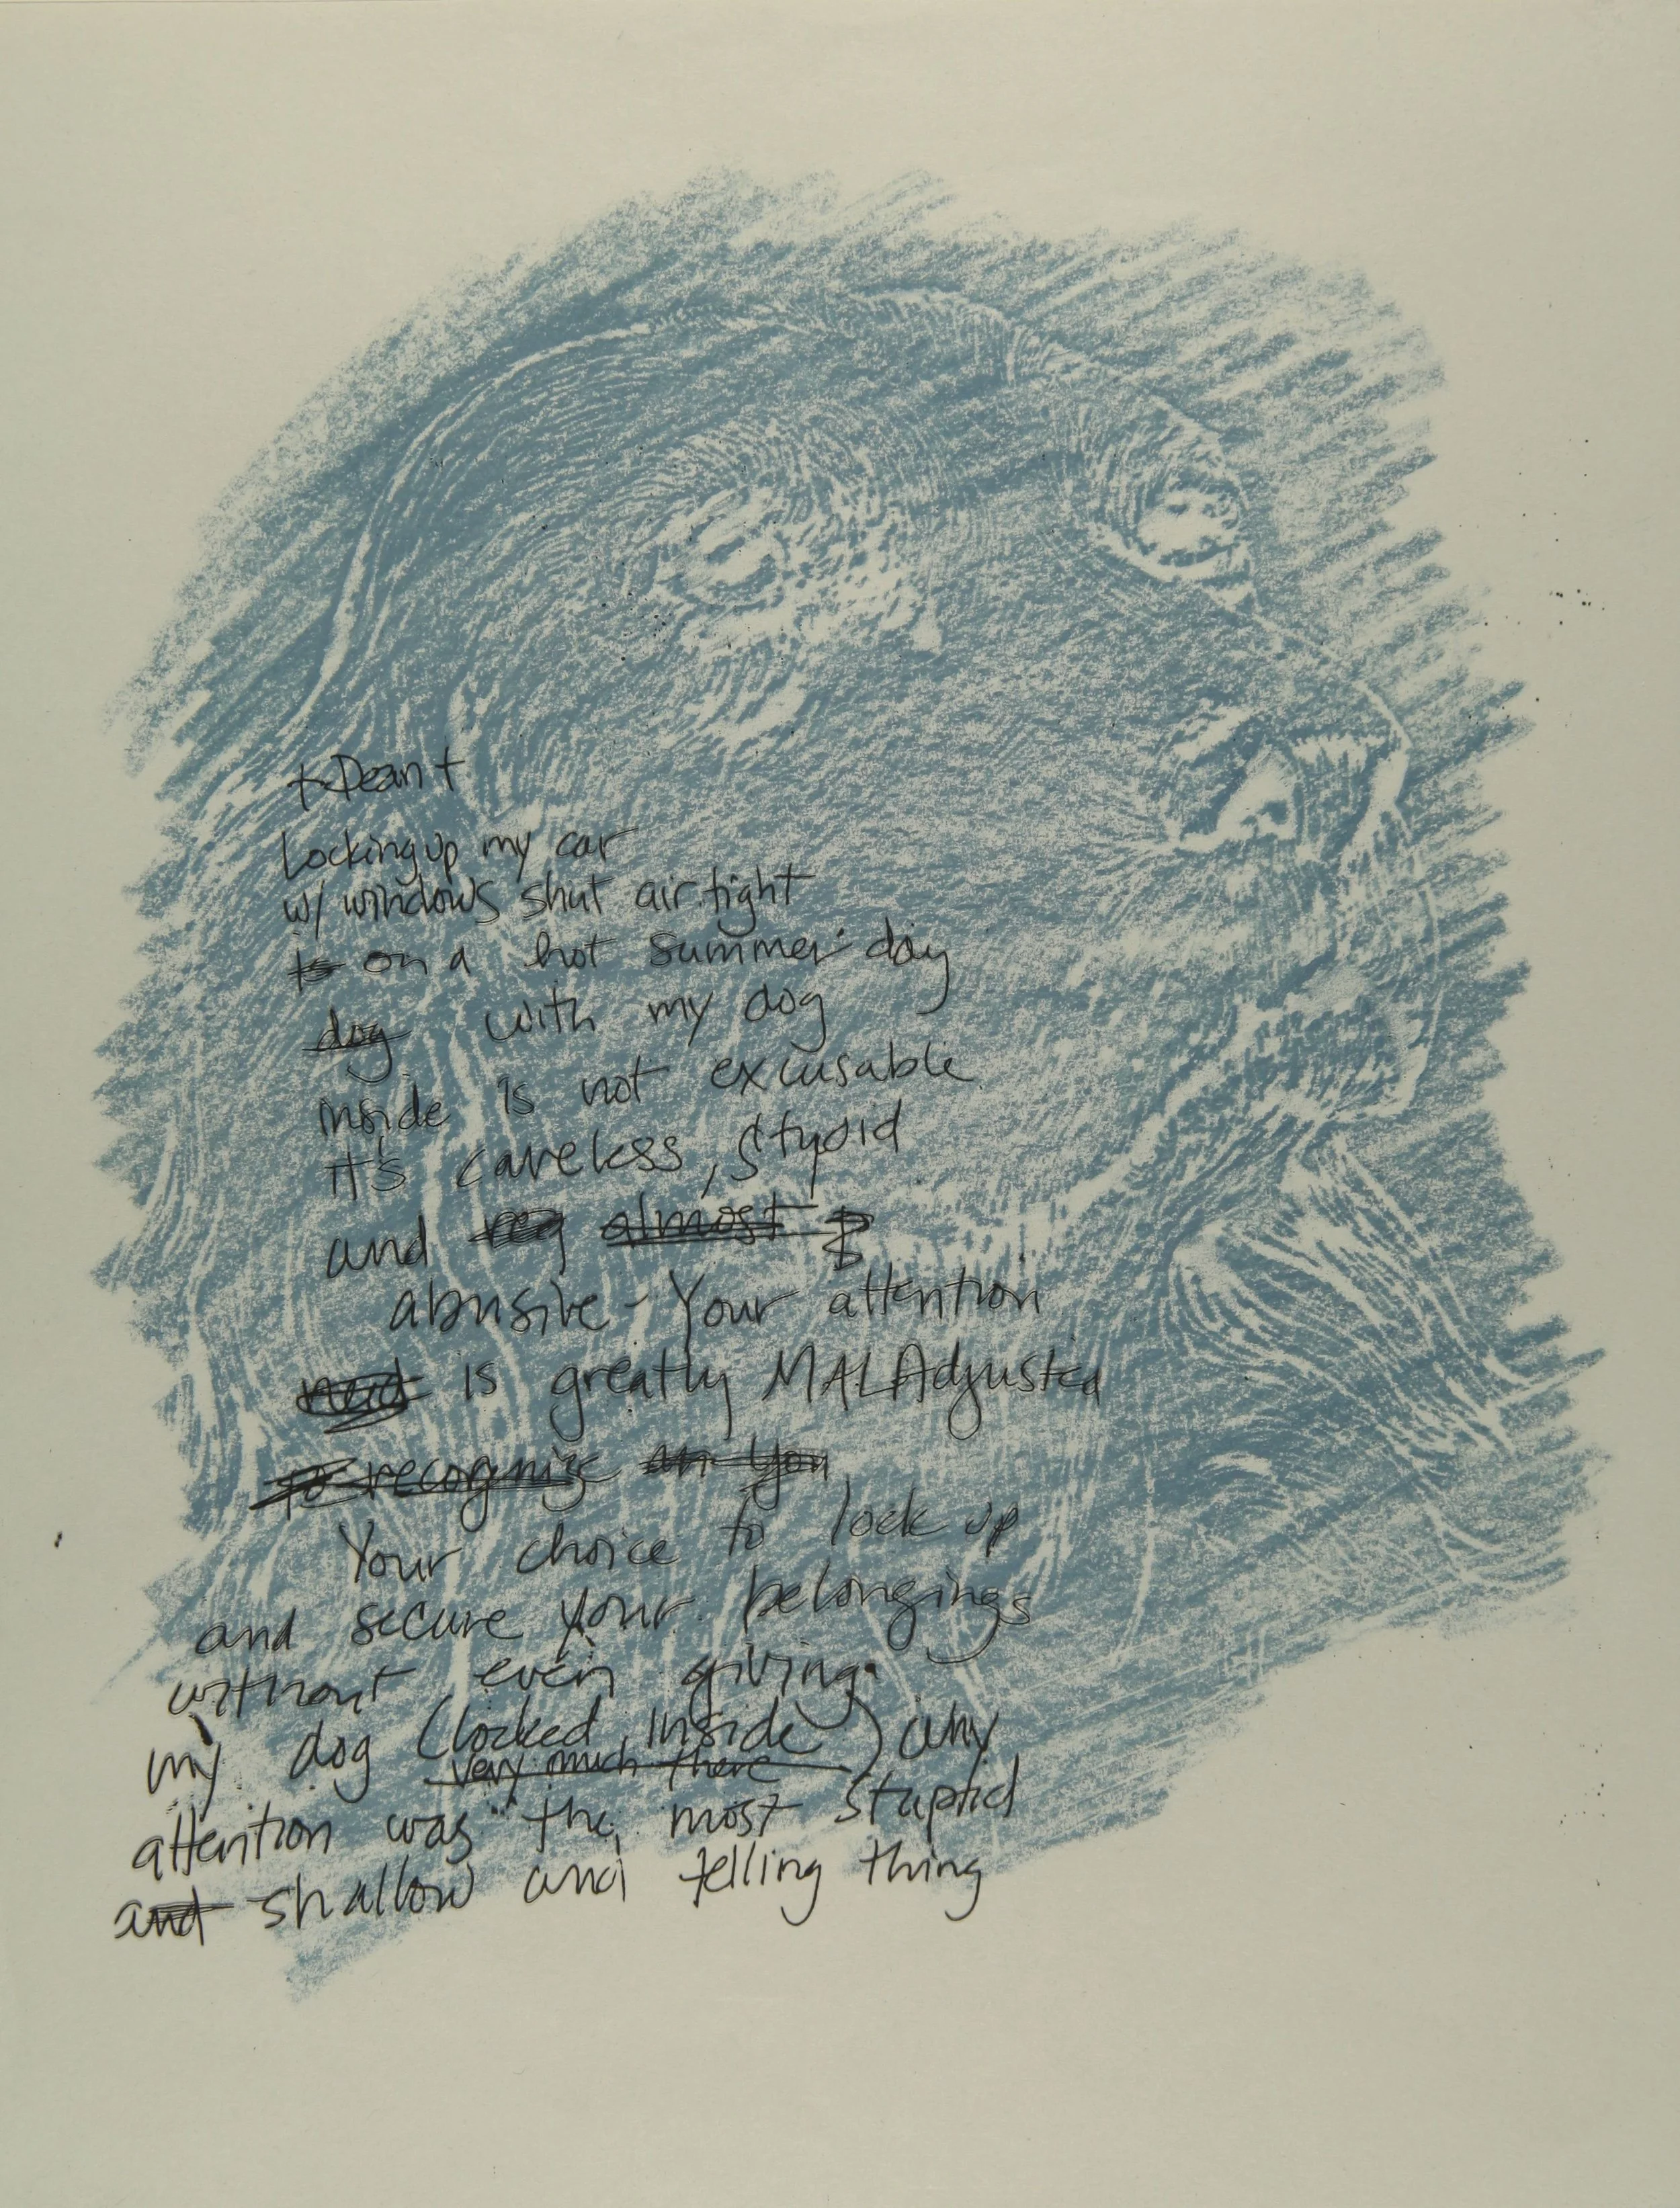 + Dean +
Locking up my car
w/ windows shut air tight
is on a hot summer day
dog with my dog
inside is not excusable
it's careless, stupid
and almost
abusive - Your attention
is greatly MALAdjusted
to recognize an you
Your choice to lock up
and secure your belongings
without even giving
my dog (locked inside) any
very much there
attention was the most stupid
and shallow and telling thing